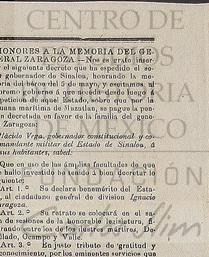 HONORES A LA MEMORIA DEL GE-
RAL ZARAGOZA.—Nos es grato inser-
r el siguiente decreto que ha espedido el se-
or gobernador de Sinaloa, honrando la me-
oria del héroe del 5 de mayo, y escitamos al
premo gobierno á que acceda desde luego á
peticion de aquel Estado, sobre que por la
uana marítima de Mazatlan, se pague la pen-
n decretada en favor de la familia del gene-
l Zaragoza:
Plácido Vega, gobernador constitucional y co-
mandante militar del Estado de Sinaloa, á
sus habitantes, sabed:
Que en uso de las amplias facultades de que
e hallo investido, he tenido á bien decretar lo
guiente:
Art. 1.º Se declara benemérito del Esta-
al ciudadano general de division Ignacio
aragoza.
Art. 2.º Su retrato se colocará en el sa-
n de sesiones de la honorable legislatura, fi-
rando entre los de los ilustres mártires, De-
llado, Ocampo y Valle.
Art. 3.º En justo tributo de gratitud y
conocimiento, por los eminentes servicios que
CENTRO DE
FUNDACIÓN